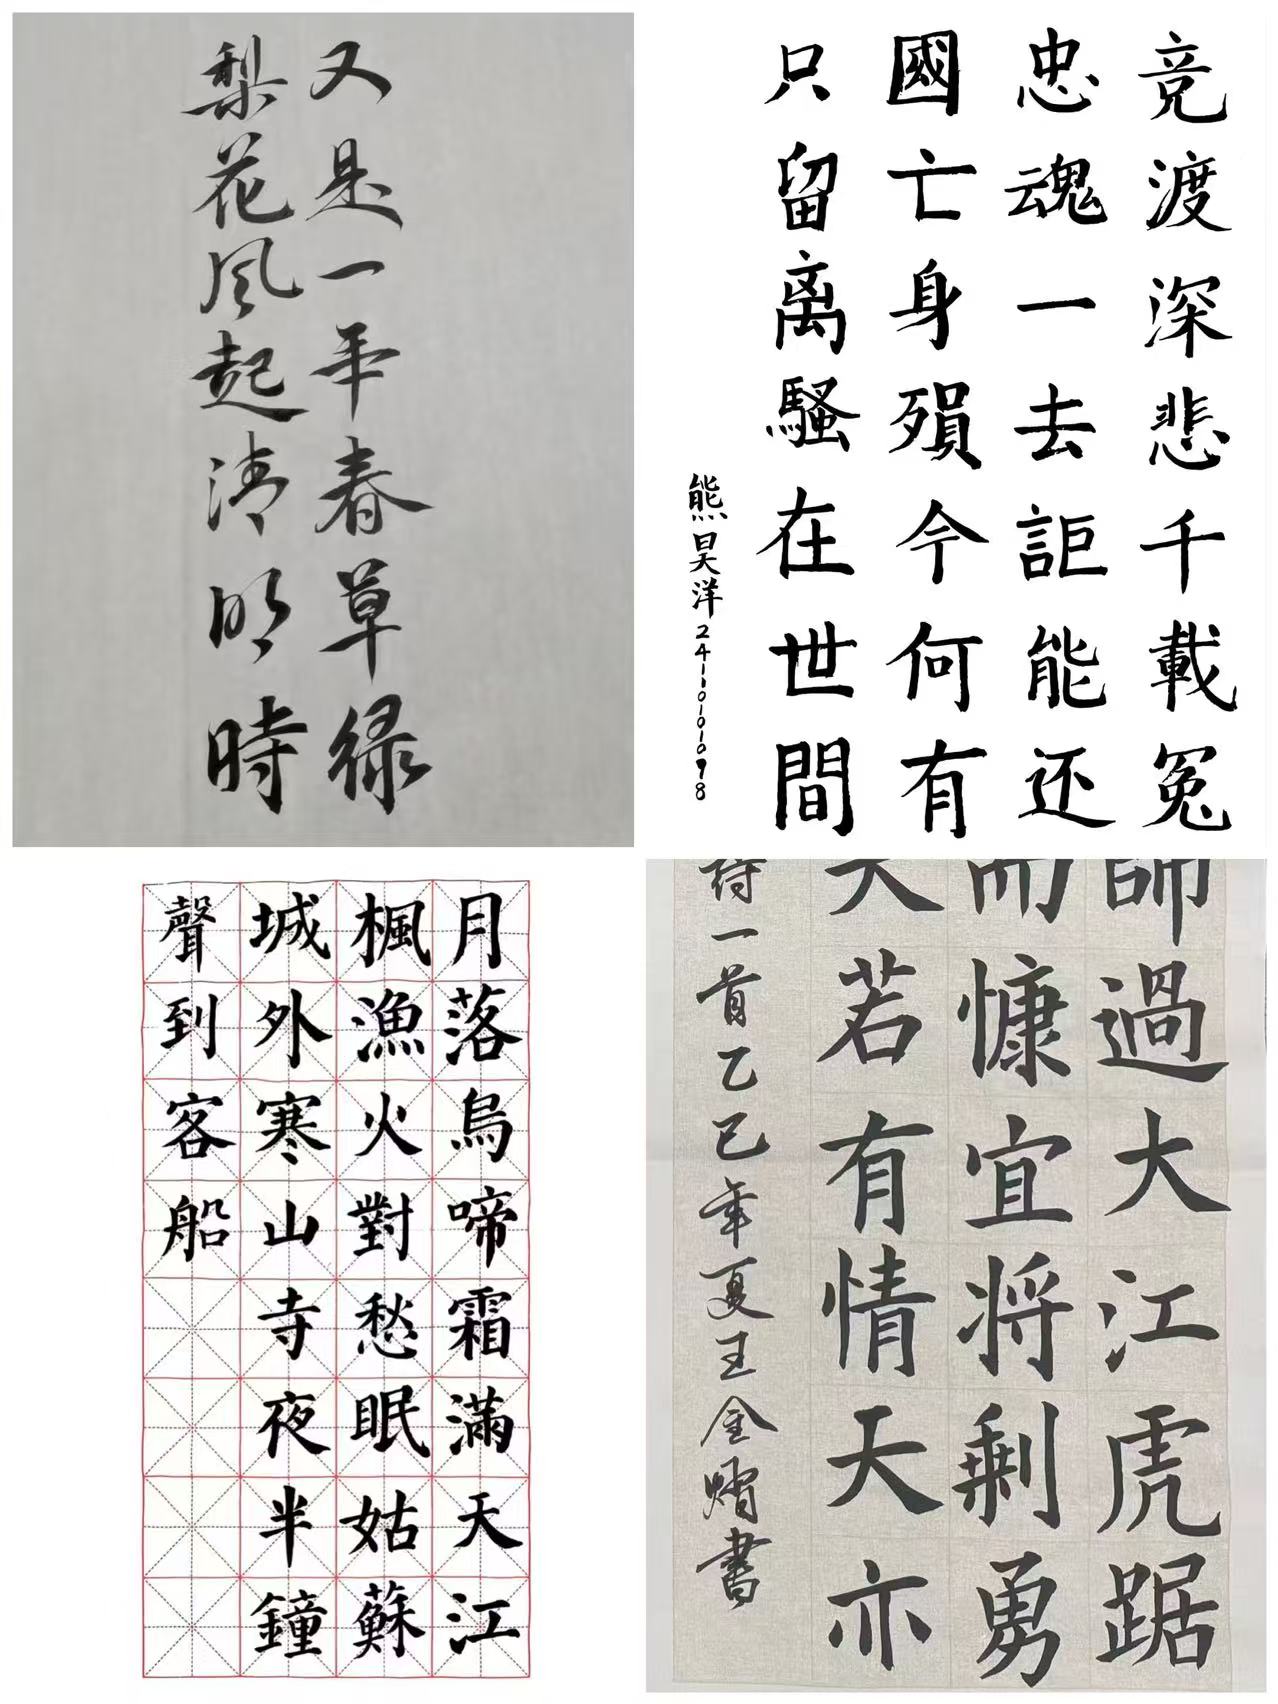 又是一年春草绿
梨花风起清明時
竞渡深悲千載冤
忠魂一去詎能还
國亡身殞今何有
只留离騷在世間
熊昊洋2411010098
月落烏啼霜滿天江
楓漁火對愁眠姑蘇
城外寒山寺夜半鐘
聲到客船
師過大江虎踞
而慷宜将剩勇
天若有情天亦
诗一首乙巳年夏王金熠書